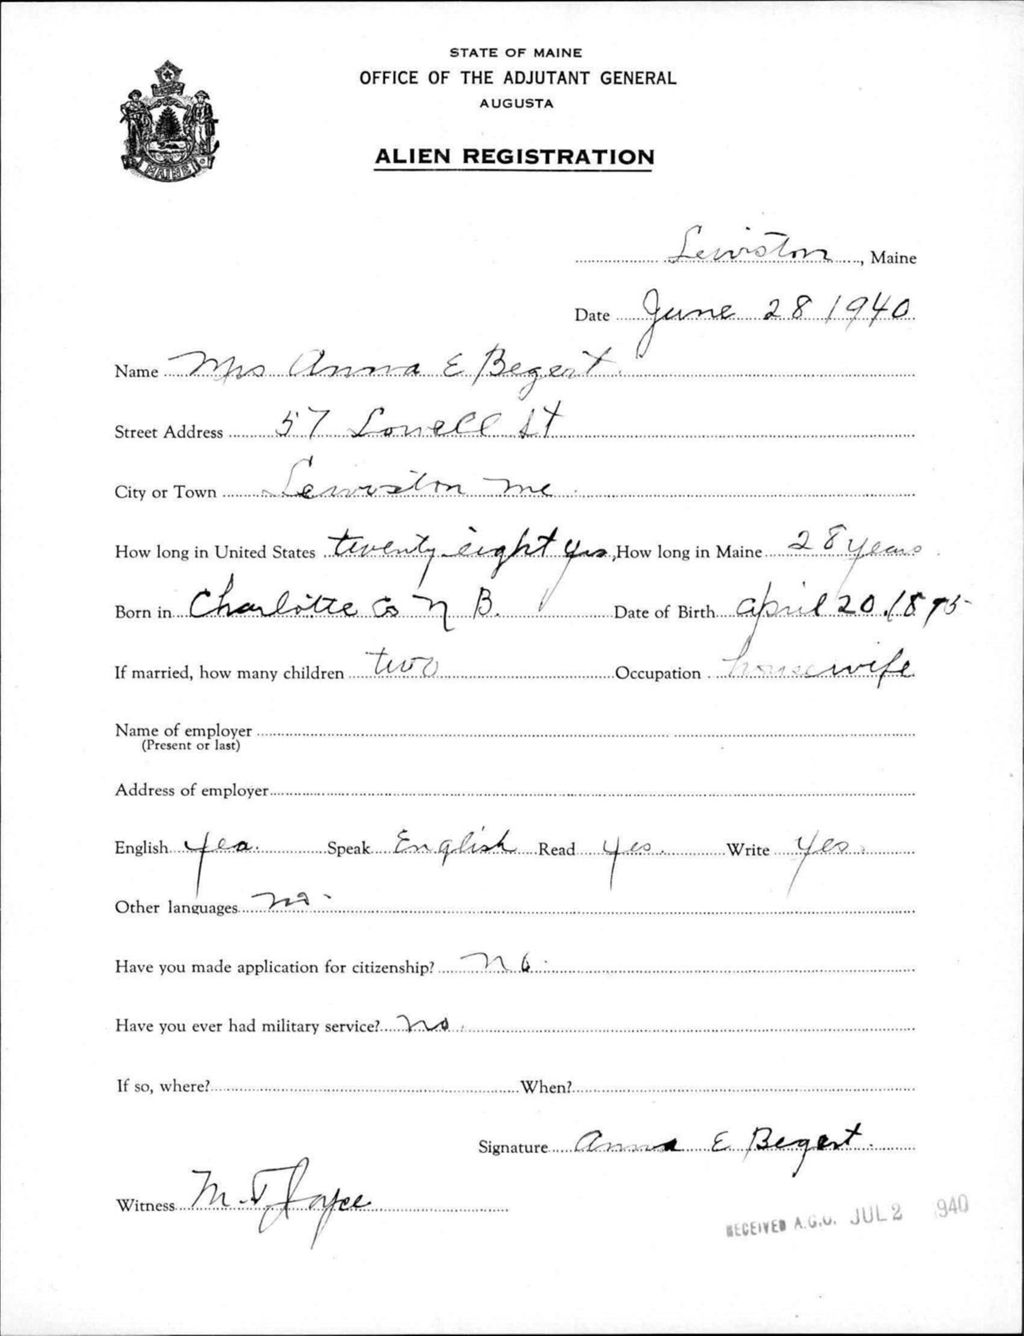 STATE OF MAINE
OFFICE OF THE ADJUTANT GENERAL
AUGUSTA
ALIEN REGISTRATION
MAINE
Lewiston, Maine
Date June 28 1940
Name Mrs Anna E Begert
Street Address 57 Lowell St
City or Town Lewiston Me
How long in United States twenty eight yrs, How long in Maine 28 years
Born in Charlotte Co N B. Date of Birth april 20, 1895
If married, how many children two Occupation housewife
Name of employer
(Present or last)
Address of employer
English yea. Speak English Read yes. Write yes.
Other languages no
Have you made application for citizenship? No
Have you ever had military service? no
If so, where? When?
Signature Anna E Begert.
Witness M. T. Joyce
RECEIVED A.G.O. JUL 2 940